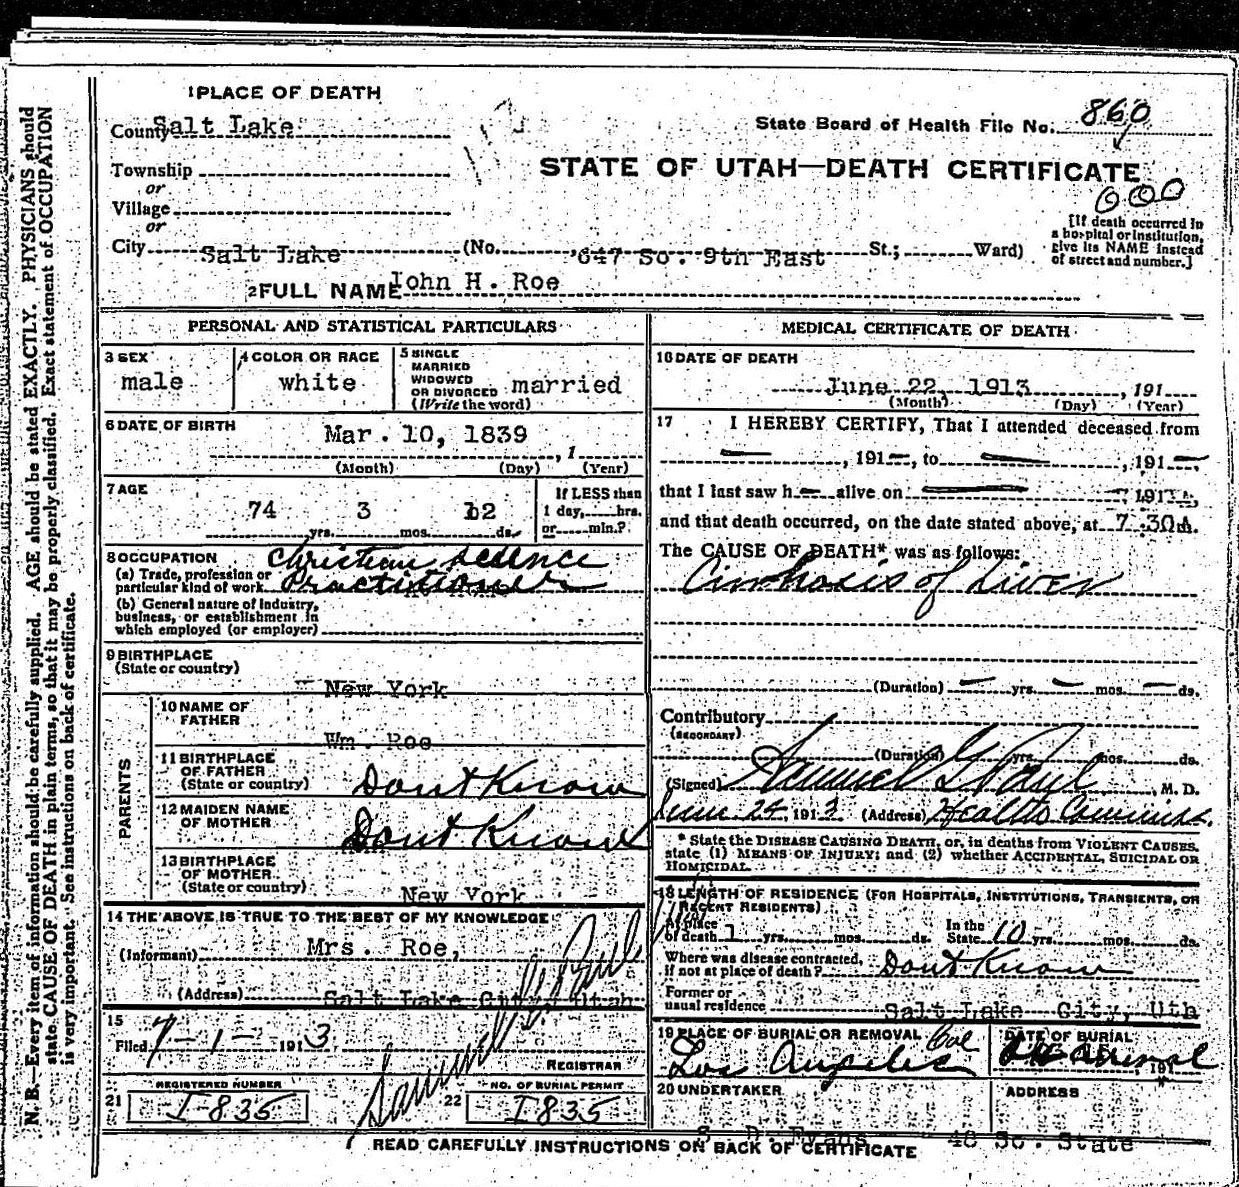 1 PLACE OF DEATH
County Salt Lake
Township
or
Village
or
City Salt Lake (No. 647 So. 9th East St.; Ward)
State Board of Health File No. 860
STATE OF UTAH—DEATH CERTIFICATE
000
[If death occurred in a hospital or institution, give its NAME instead of street and number.]
2 FULL NAME John H. Roe
PERSONAL AND STATISTICAL PARTICULARS
3 SEX male
4 COLOR OR RACE white
5 SINGLE MARRIED WIDOWED OR DIVORCED married
(Write the word)
6 DATE OF BIRTH
Mar. 10, 1839
, 1
(Month) (Day) (Year)
7 AGE
74 yrs. 3 mos. 12 ds.
If LESS than 1 day, hrs. or min.?
8 OCCUPATION
(a) Trade, profession or particular kind of work Christian Science Practitioner
(b) General nature of industry, business, or establishment in which employed (or employer)
9 BIRTHPLACE
(State or country)
New York
PARENTS
10 NAME OF FATHER
Wm. Roe
11 BIRTHPLACE OF FATHER
(State or country) Dont Know
12 MAIDEN NAME OF MOTHER Dont Know
13 BIRTHPLACE OF MOTHER
(State or country) New York
14 THE ABOVE IS TRUE TO THE BEST OF MY KNOWLEDGE
(Informant) Mrs. Roe,
(Address) Salt Lake City, Utah
15
Filed 7-1- 1913
Samuel G. Paul
REGISTRAR
21 REGISTERED NUMBER
I-835
22 NO. OF BURIAL PERMIT
I835
MEDICAL CERTIFICATE OF DEATH
16 DATE OF DEATH
June 22, 1913 , 191
(Month) (Day) (Year)
17 I HEREBY CERTIFY, That I attended deceased from
— , 191—, to — , 191—
that I last saw h— alive on — , 191
and that death occurred, on the date stated above, at 7.30A m.
The CAUSE OF DEATH* was as follows:
Cirrhosis of Liver
(Duration) — yrs. — mos. — ds.
Contributory
(SECONDARY)
(Duration) yrs. mos. ds.
(Signed) Samuel G Paul, M. D.
June 24 1913 (Address) Health Commiss.
* State the DISEASE CAUSING DEATH, or, in deaths from VIOLENT CAUSES, state (1) MEANS OF INJURY; and (2) whether ACCIDENTAL, SUICIDAL OR HOMICIDAL.
18 LENGTH OF RESIDENCE (FOR HOSPITALS, INSTITUTIONS, TRANSIENTS, OR RECENT RESIDENTS)
At place of death 1 yrs. mos. ds. In the State 10 yrs. mos. ds.
Where was disease contracted, if not at place of death? Dont Know
Former or usual residence Salt Lake City, Uth
19 PLACE OF BURIAL OR REMOVAL
Los Angeles Cal
DATE OF BURIAL
191
20 UNDERTAKER
S. D. Evans
ADDRESS
48 So. State
READ CAREFULLY INSTRUCTIONS ON BACK OF CERTIFICATE
N. B.—Every item of information should be carefully supplied. AGE should be stated EXACTLY. PHYSICIANS should
state CAUSE OF DEATH in plain terms, so that it may be properly classified. Exact statement of OCCUPATION
is very important. See instructions on back of certificate.